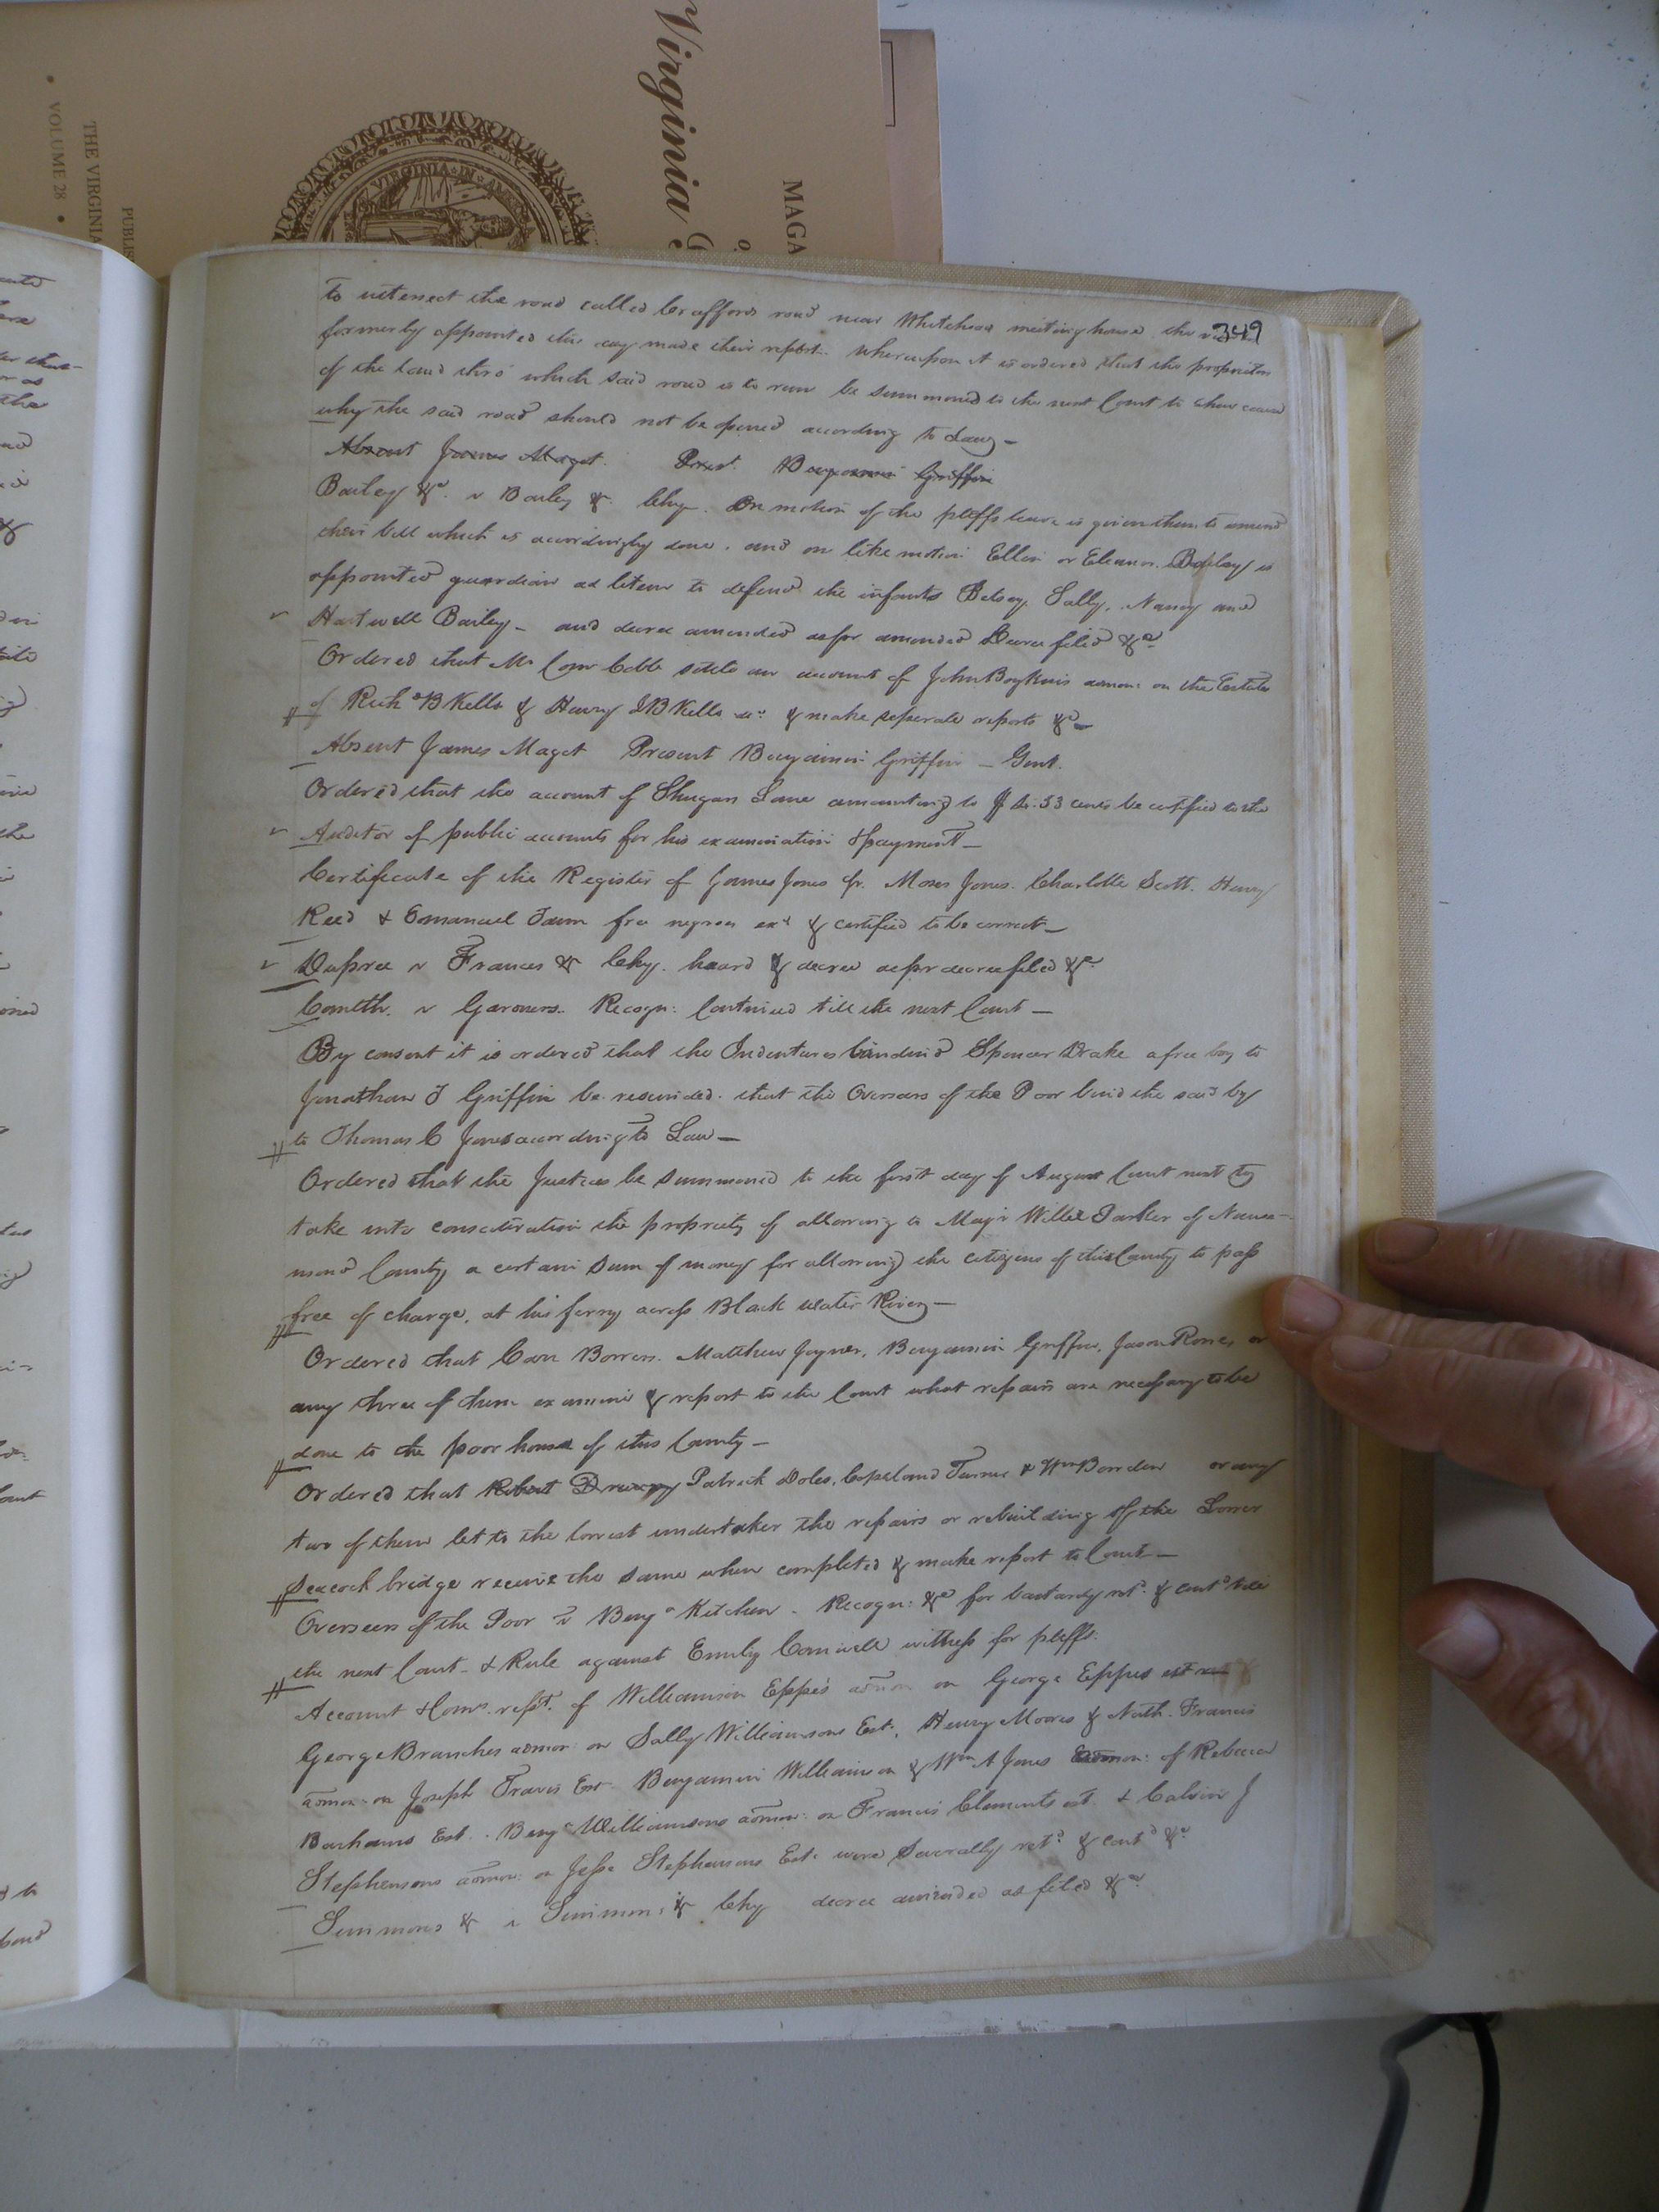 Virginia
MAGA
THE VIRGINIA
VOLUME 28
PUBLIS
VIRGINIA IN
349
to intersect the road called Crafford road near Whitehead meeting house, the
formerly appointed this day made their report. Whereupon it is ordered that the proprietors
of the land thro' which said road is to run be summoned to the next Court to shew cause
why the said road should not be opened according to Law—
Absent James Maget. Prest. Benjamin Griffin
Bailey &c. v Bailey &c. Chy. On motion of the pltffs leave is given them to amend
their bill which is accordingly done. and on like motion Ellen or Eleanor Bailey is
appointed guardian ad litem to defend the infants Betsey, Sally, Nancy and
Hartwell Bailey— and decree amended as pr amended Decree filed &c
Ordered that Mr Com Cobb settle an account of John Boykins admon: on the Estates
of Richd B Kello & Henry B Kello & make seperate reports &c—
Absent James Maget Present Benjamin Griffin — Gent.
Ordered that the account of Lane amounting to 53 cents be certified to the
Auditor of public accounts for his examination & payment—
Certificate of the Register of James Jones Jr. Moses Jones. Charlotte Scott. Henry
Reed & Emanuel free negroes exd & certified to be correct—
Dupree v Frances &c Chy. heard & decree as pr decree filed &c
Comlth. v Gardners. Recogn: Continued till the next Court—
By consent it is ordered that the Indentures binding Spencer Drake a free boy to
Jonathan T Griffin be rescinded. that the Overseers of the Poor bind the said boy
to Thomas C Jones according to Law—
Ordered that the Justices be summoned to the first day of August Court next to
take into consideration the propriety of allowing to Majr Willie Parker of Nanse-
mond County a certain sum of money for allowing the citizens of this County to pass
free of charge, at his ferry across Black water River—
Ordered that Carr Bowers. Matthew Joyner, Benjamin Griffin, Jason Rones, or
any three of them examine & report to the Court what repairs are necessary to be
done to the poor house of this County—
Ordered that Robert Drewry Patrick Doles, Copeland Turner & Wm Borden or any
two of them let to the lowest undertaker the repairs or rebuilding of the Lower
Seacock bridge receive the same when completed & make report to Court—
Overseers of the Poor v Benja Kitchen. Recogn: &c for bastardy retd. & contd till
the next Court— & Rule against Emily witness for pltffs.
Account & Coms. rept. of Williamson Eppes admor on George Eppes est
George Branches admor: on Sally Williamsons Est., Henry Moores & Nath. Francis
admor: on Joseph Travis Est. Benjamin Williamson & Wm A Jones admon: of Rebecca
Barhams Est. Benja Williamsons admor: on Francis Clements est. & Calvin J
Stephensons admor: on Jesse Stephensons Est. were severally retd & contd &c
Simmons & v Simmons & Chy decree amended as filed &c